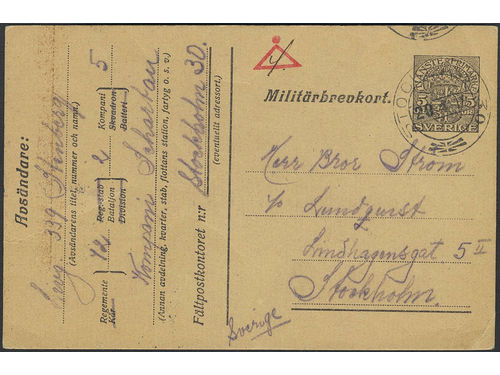 Avsändare:
Serg 339 Stenberg
(Avsändarens titel, nummer och namn.)
Regemente 12 Reg.-stab Bataljon 2 Kompani 5
Kår Division Skvadron Batteri
Kompani
(Annan avdelning, kvarter, stab, flottans station, fartyg o. s. v.)
Fältpostkontoret n:r Stockholm 30.
(eventuellt adressort.)
Militärbrevkort.
SVERIGE
STOCKHOLM
30
Herr Bror Ström
c/o Lundquist
Lindhagensgat 5 II
Stockholm.
Sverige